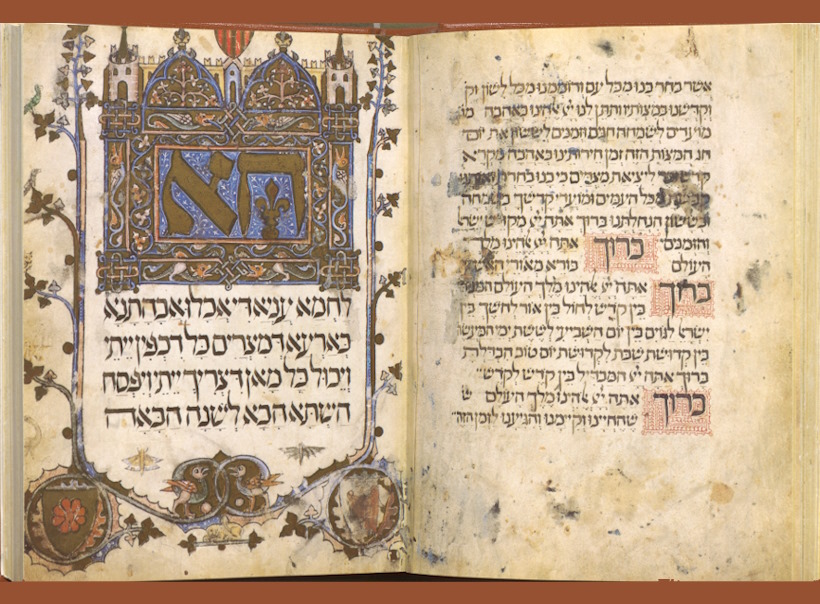 אשר בחר בנו מכל עם ורוממנו מכל לשון וק
וקדשנו במצותיו ותתן לנו יי אלהינו באהבה מו
מועדים לשמחה חגים וזמנים לששון את יום
חג המצות הזה זמן חירותינו באהבה מקרא
קדש ליציאת מצרים כי בנו בחרת
מכל העמים ומועדי קדשך בשמחה
ובששון הנחלתנו ברוך אתה יי מקדש ישרא
והזמנים ברוך אתה יי אלהינו מלך
העולם בורא מאורי האש
ברוך אתה יי אלהינו מלך העולם
בין קדש לחול בין אור לחשך בין
ישראל לגוים בין יום השביעי לששת ימי המעשה
בין קדושת שבת לקדושת יום טוב הבדלת
ברוך אתה יי המבדיל בין קדש לקדש
ברוך אתה יי אלהינו מלך העולם ש
שהחיינו וקיימנו והגיענו לזמן הזה
הא
לחמא עניא די אכלו אבהתנא
בארעא דמצרים כל דכפין ייתי
ויכול כל מאן דצריך ייתי ויפסח
השתא הכא לשנה הבאה